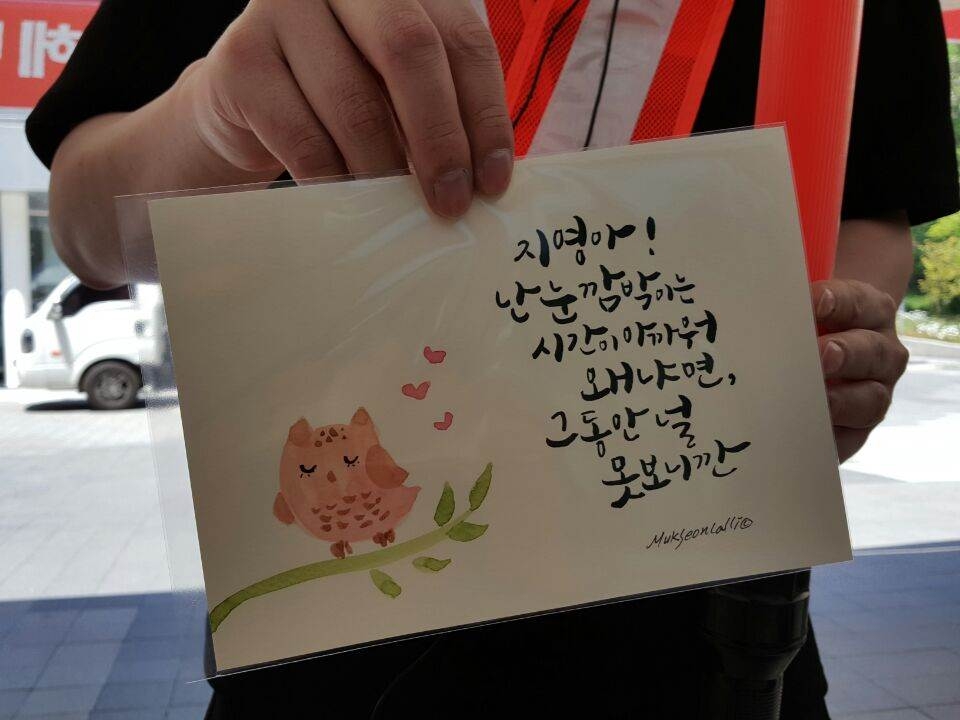 지영아!
난 눈 깜박이는
시간이 아까워
왜냐면,
그동안 널
못보니깐
MukSeonCalli